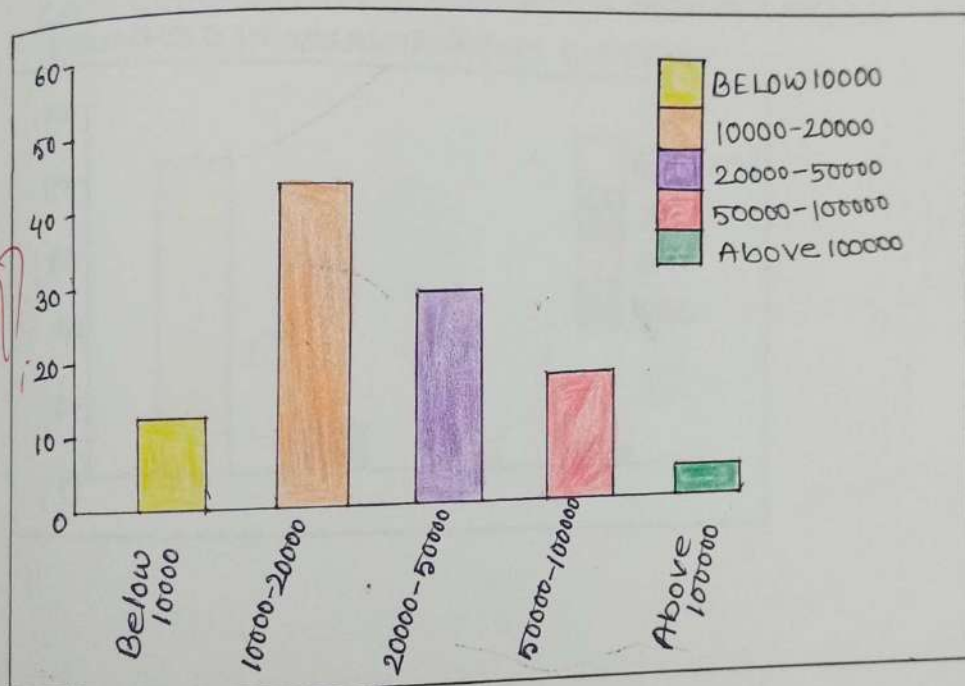 60
50
40
30
20
10
0
BELOW 10000
10000-20000
20000-50000
50000-100000
Above 100000
Below
10000
10000-20000
20000-50000
50000-100000
Above
100000